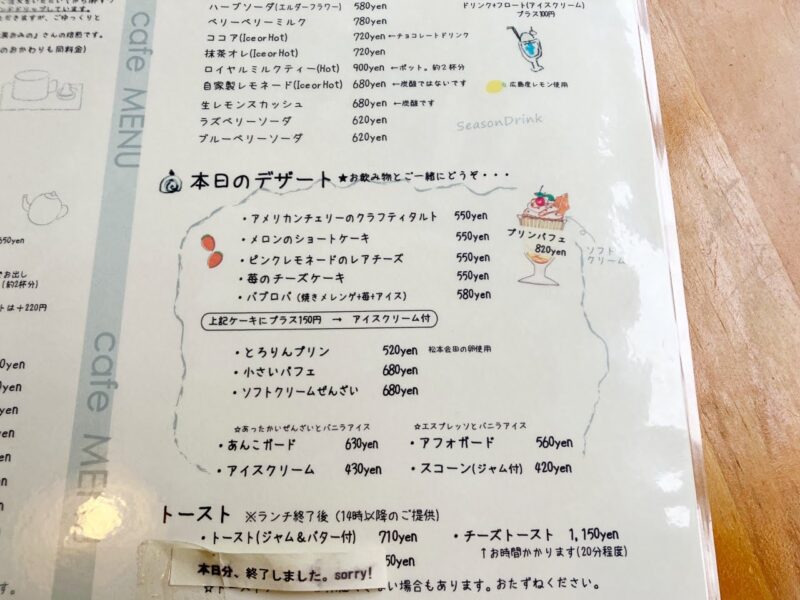 ンドドリップしています。
だきますが、ごゆっくりと
さんの焙煎です。
のおかわりも同料金)
cafe MENU
650yen
でお出し
(約2杯分)
トは+220円
cafe MEN
ハーブソーダ(エルダーフラワー) 580yen
ベリーベリーミルク 780yen
ココア(Ice or Hot) 720yen ←チョコレートドリンク
抹茶オレ(Ice or Hot) 720yen
ロイヤルミルクティー(Hot) 900yen ←ポット。約2杯分
自家製レモネード(Ice or Hot) 680yen ←炭酸ではないです
生レモンスカッシュ 680yen ←炭酸です
ラズベリーソーダ 620yen
ブルーベリーソーダ 620yen
ドリンク+フロート(アイスクリーム)
プラス100円
広島産レモン使用
SeasonDrink
本日のデザート ★お飲み物とご一緒にどうぞ・・・
・アメリカンチェリーのクラフティタルト 550yen
・メロンのショートケーキ 550yen
・ピンクレモネードのレアチーズ 550yen
・苺のチーズケーキ 550yen
・パブロバ(焼きメレンゲ+苺+アイス) 580yen
上記ケーキにプラス150円 → アイスクリーム付
プリンパフェ
820yen
ソフト
クリーム
・とろりんプリン 520yen 松本会田の卵使用
・小さいパフェ 680yen
・ソフトクリームぜんざい 680yen
☆あったかいぜんざいとバニラアイス
・あんこガード 630yen
・アイスクリーム 430yen
☆エスプレッソとバニラアイス
・アフォガード 560yen
・スコーン(ジャム付) 420yen
トースト ※ランチ終了後(14時以降のご提供)
・トースト(ジャム&バター付) 710yen
・チーズトースト 1,150yen
↑お時間かかります(20分程度)
50yen
本日分、終了しました。sorry!
ない場合もあります。おたずねください。